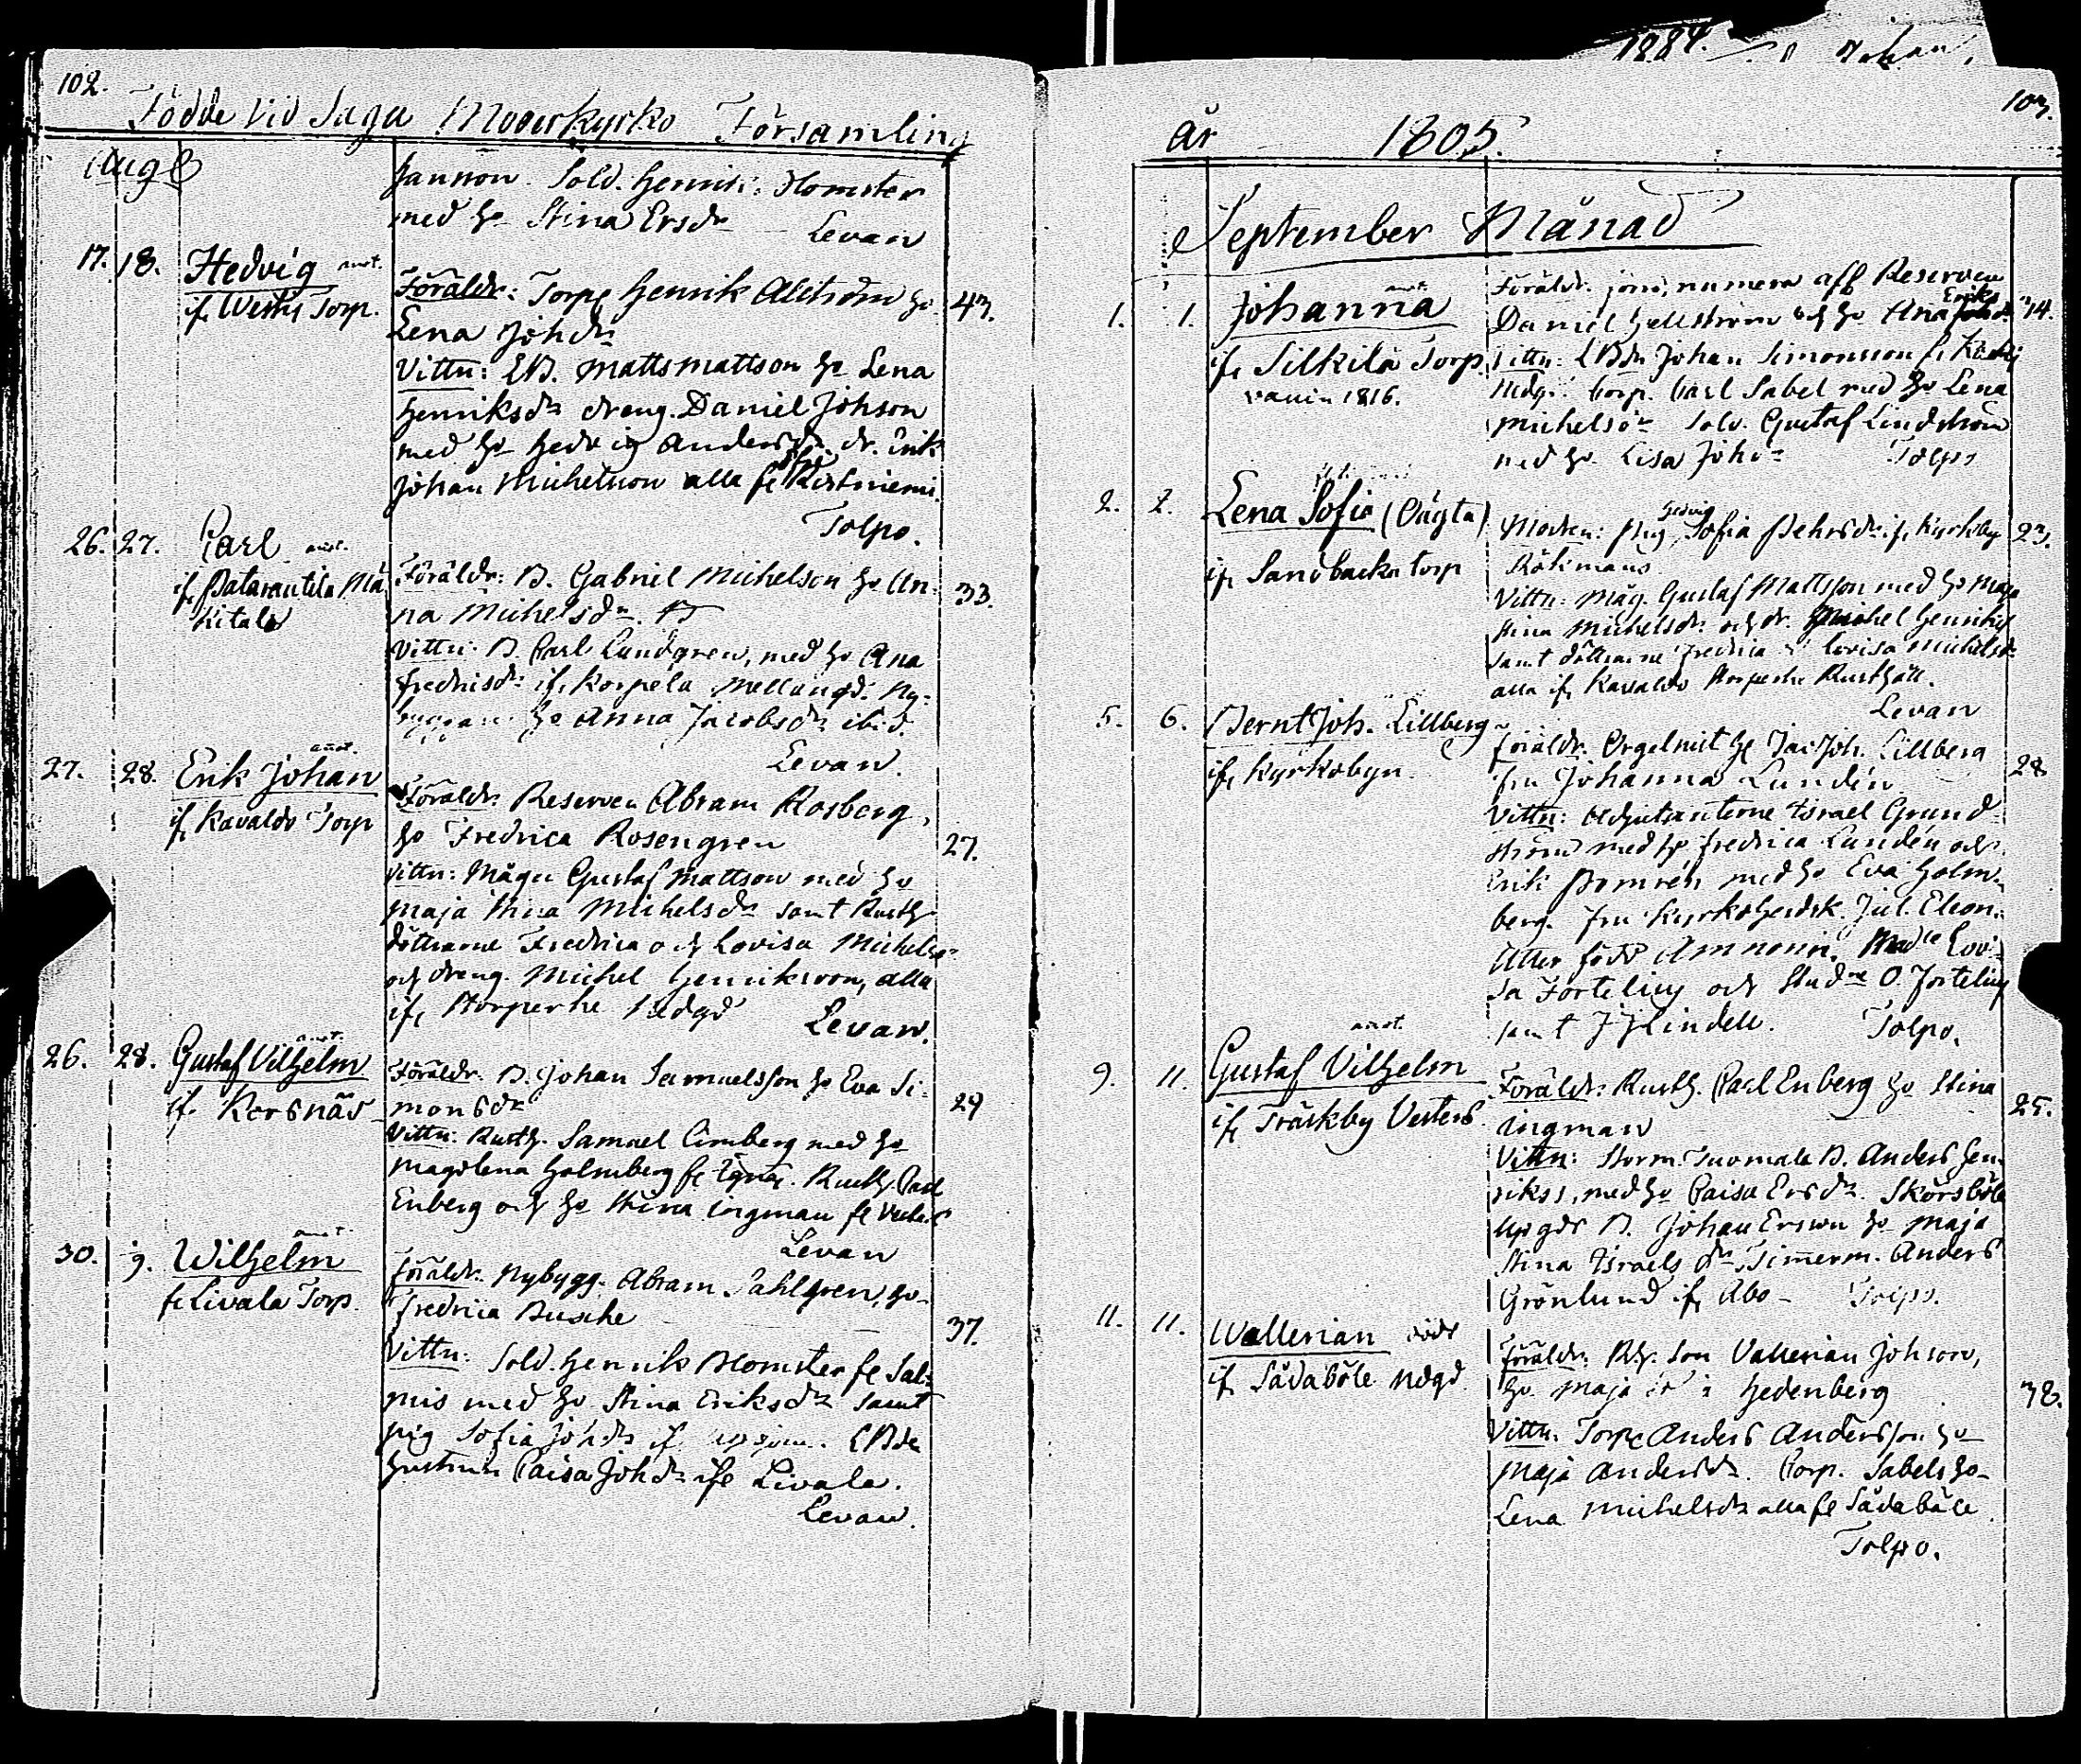 102.
Födde vid Sagu Moderkyrko Församling
Aug
Sold. Henrik Blomster
med h. Stina Ersdr
Levan
17. 18. Hedvig anot.
if. Torp.
Föräldr: Torp. Henrik Ahlström h.
43.
Lena Johdr
Vittn: Matts Mattson h. Lena
Henriksdr dreng. Daniel Johson
med h. Hedvig Andersdr. dr. Erik
Johan Michelsson alla fr
Tolpo.
26. 27. Carl anot.
if. Patarautila
Föräldr: B. Gabriel Michelson h. An-
33.
na Michelsdr.
Vittn: B. Carl Lundgren, med h. Ana
Fredriksdr if. Korpela Mellangd. Ny-
h. Anna Jacobsdr ibid.
Levan.
27. 28. Erik Johan anot.
if. Kavaldo Torp
Föräldr: Reserven Abram Rosberg,
h. Fredrica Rosengren
27.
Vittn: Mågen Gustaf Mattson med h.
Maja Stina Michelsdr samt Rusth.
döttrarne Fredrica och Lovisa Michelsdr
och dreng. Michel Henriksson, alla
if. Storperhe
Levan.
26. 28. Gustaf Vilhelm anot.
if. Korsnäs
Föräldr. B. Johan Samuelsson h. Eva Si-
monsdr
29
Vittn: Rusth. Samuel Limberg med h.
Magdlena Holmberg fr Rusth. Carl
Enberg och h. Stina Ingman fr
Levan
30. 9. Wilhelm anot
fr Livala Torp.
Föräldr. Nybygg. Abram Sahlgren, h.
Fredrica Busche
37.
Vittn: Sold. Henrik Blomster fr Sal-
mis med h. Stina Eriksdr samt
pig Sofia Johdr if.
hustrun Caisa Johdr if Livala.
Levan.
1884. Johan
103.
år 1805.
September Månad
1. 1. Johanna anot.
if. Silkilä Torp.
1816.
Föräldr. numera aff. Reserven
Daniel Hellström och h. Ana Eriks
14.
Vittn: Johan Simonsson
Ndg. Corp. Carl Sabel med h. Lena
Michelsdr Sold. Gustaf Lindström
med h. Lisa Johdr Tolpo
2. 2. Lena Sofia (Oägta)
if. Sandbacka torp
Modren: Pig. Hedvig Sofia Pehrsdr if. Kyrkby
23.
Vittn: Måg. Gustaf Mattsson med h. Maja
Stina Michelsdr och dr. Michel Henriks
samt döttrarne Fredrica och Lovisa Michelsdr
alla if. Kavaldo Storperhe Rusthåll.
Levan
5. 6. Bernt Joh. Lillberg
if. Kyrkobyn.
Föräldr. Orgelnist H. Jac. Joh. Lillberg
28
fru Johanna Lundén
Vittn: Adjutanterne Israel Grund-
ström med h. Fredrica Lundén och
Erik med h. Eva Holm-
berg. fru Jul. Eleon.
Utter född Amnorin. Madlle Lovi-
sa Fortelius och Studne O. Fortelius
samt J. J. Lindell. Tolpo.
9. 11. Gustaf Vilhelm anot.
if. Träskby Vesters
Föräldr: Rusth. Carl Enberg h. Stina
25.
Ingman
Vittn: Storm. Tuomala B. Anders Hen-
rikss, med h. Caisa Ersdr. Skörsböle
Upgds B. Johan Erson h. Maja
Stina Israelsdr Timerm. Anders
Grönlund if. Åbo Tolpo.
11. 11. Wallerian död
if. Sådaböle Ndgd
Föräldr: Rh. Son Vallerian Johson,
h. Maja Hedenberg
38.
Vittn. Torp Anders Andersson h.
Maja Andersdr. Corp. Sabels h.
Lena Michelsdr alla fr Sådaböle
Tolpo.